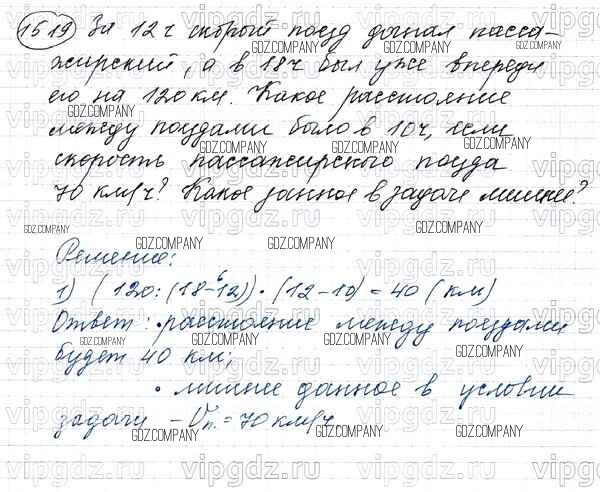 1519 За 12 ч скорый поезд догнал пасса-
жирский, а в 18 ч был уже впереди
его на 120 км. Какое расстояние
между поездами было в 10 ч, если
скорость пассажирского поезда
70 км/ч? Какое данное в задаче лишнее?
Решение:
1) (120 : (18-12)) · (12-10) = 40 (км)
Ответ: · расстояние между поездами
будет 40 км;
· лишнее данное в условии
задачи – Vп. = 70 км/ч